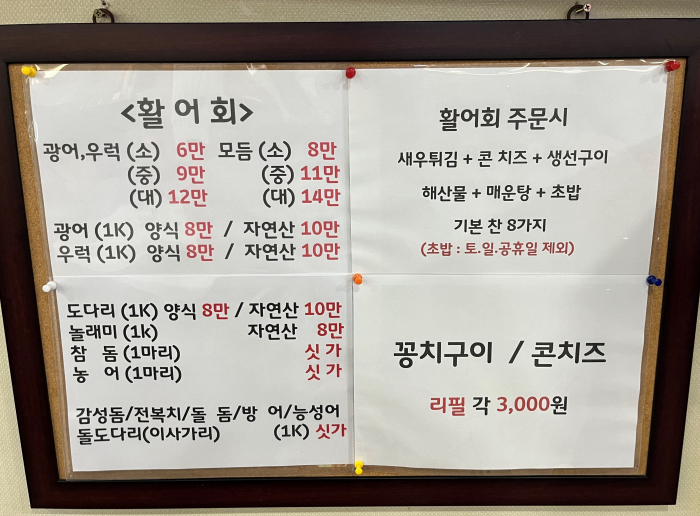 <활 어 회>
광어,우럭 (소) 6만 모듬 (소) 8만
(중) 9만 (중) 11만
(대) 12만 (대) 14만
광어 (1K) 양식 8만 / 자연산 10만
우럭 (1K) 양식 8만 / 자연산 10만
도다리 (1K) 양식 8만 / 자연산 10만
놀래미 (1k) 자연산 8만
참 돔 (1마리) 싯 가
농 어 (1마리) 싯 가
감성돔/전복치/돌 돔/방 어/능성어
돌도다리(이사가리) (1K) 싯가
활어회 주문시
새우튀김 + 콘 치즈 + 생선구이
해산물 + 매운탕 + 초밥
기본 찬 8가지
(초밥 : 토.일.공휴일 제외)
꽁치구이 / 콘치즈
리필 각 3,000원